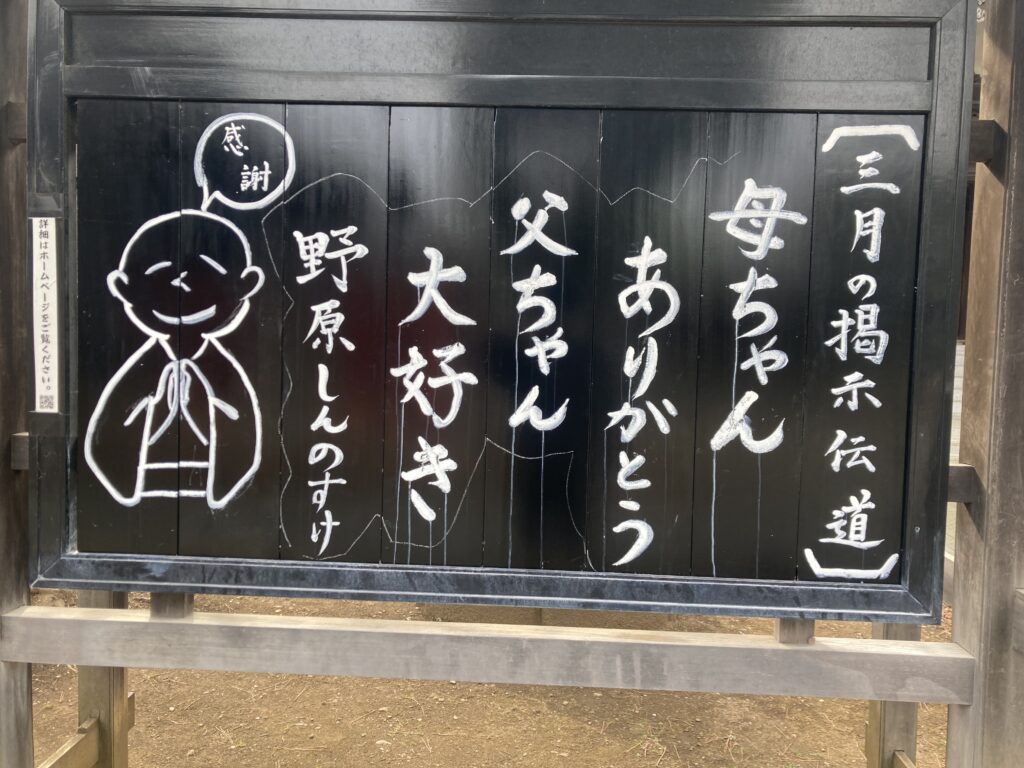 〔三月の掲示伝道〕
母ちゃん
ありがとう
父ちゃん
大好き
野原しんのすけ
感謝
詳細はホームページをご覧ください。